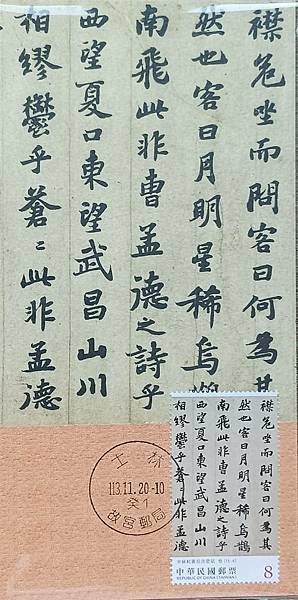 襟危坐而問客曰何為其
然也客曰月明星稀烏
南飛此非曹孟德之詩乎
西望夏口東望武昌山川
相繆鬱乎蒼〻此非孟德
士林
113.11.20.-10
癸1
故宮郵局
襟危坐而問客曰何為其
然也客曰月明星稀烏鵲
南飛此非曹孟德之詩乎
西望夏口東望武昌山川
相繆鬱乎蒼〻此非孟德
中華民國郵票
REPUBLIC OF CHINA (TAIWAN)
8